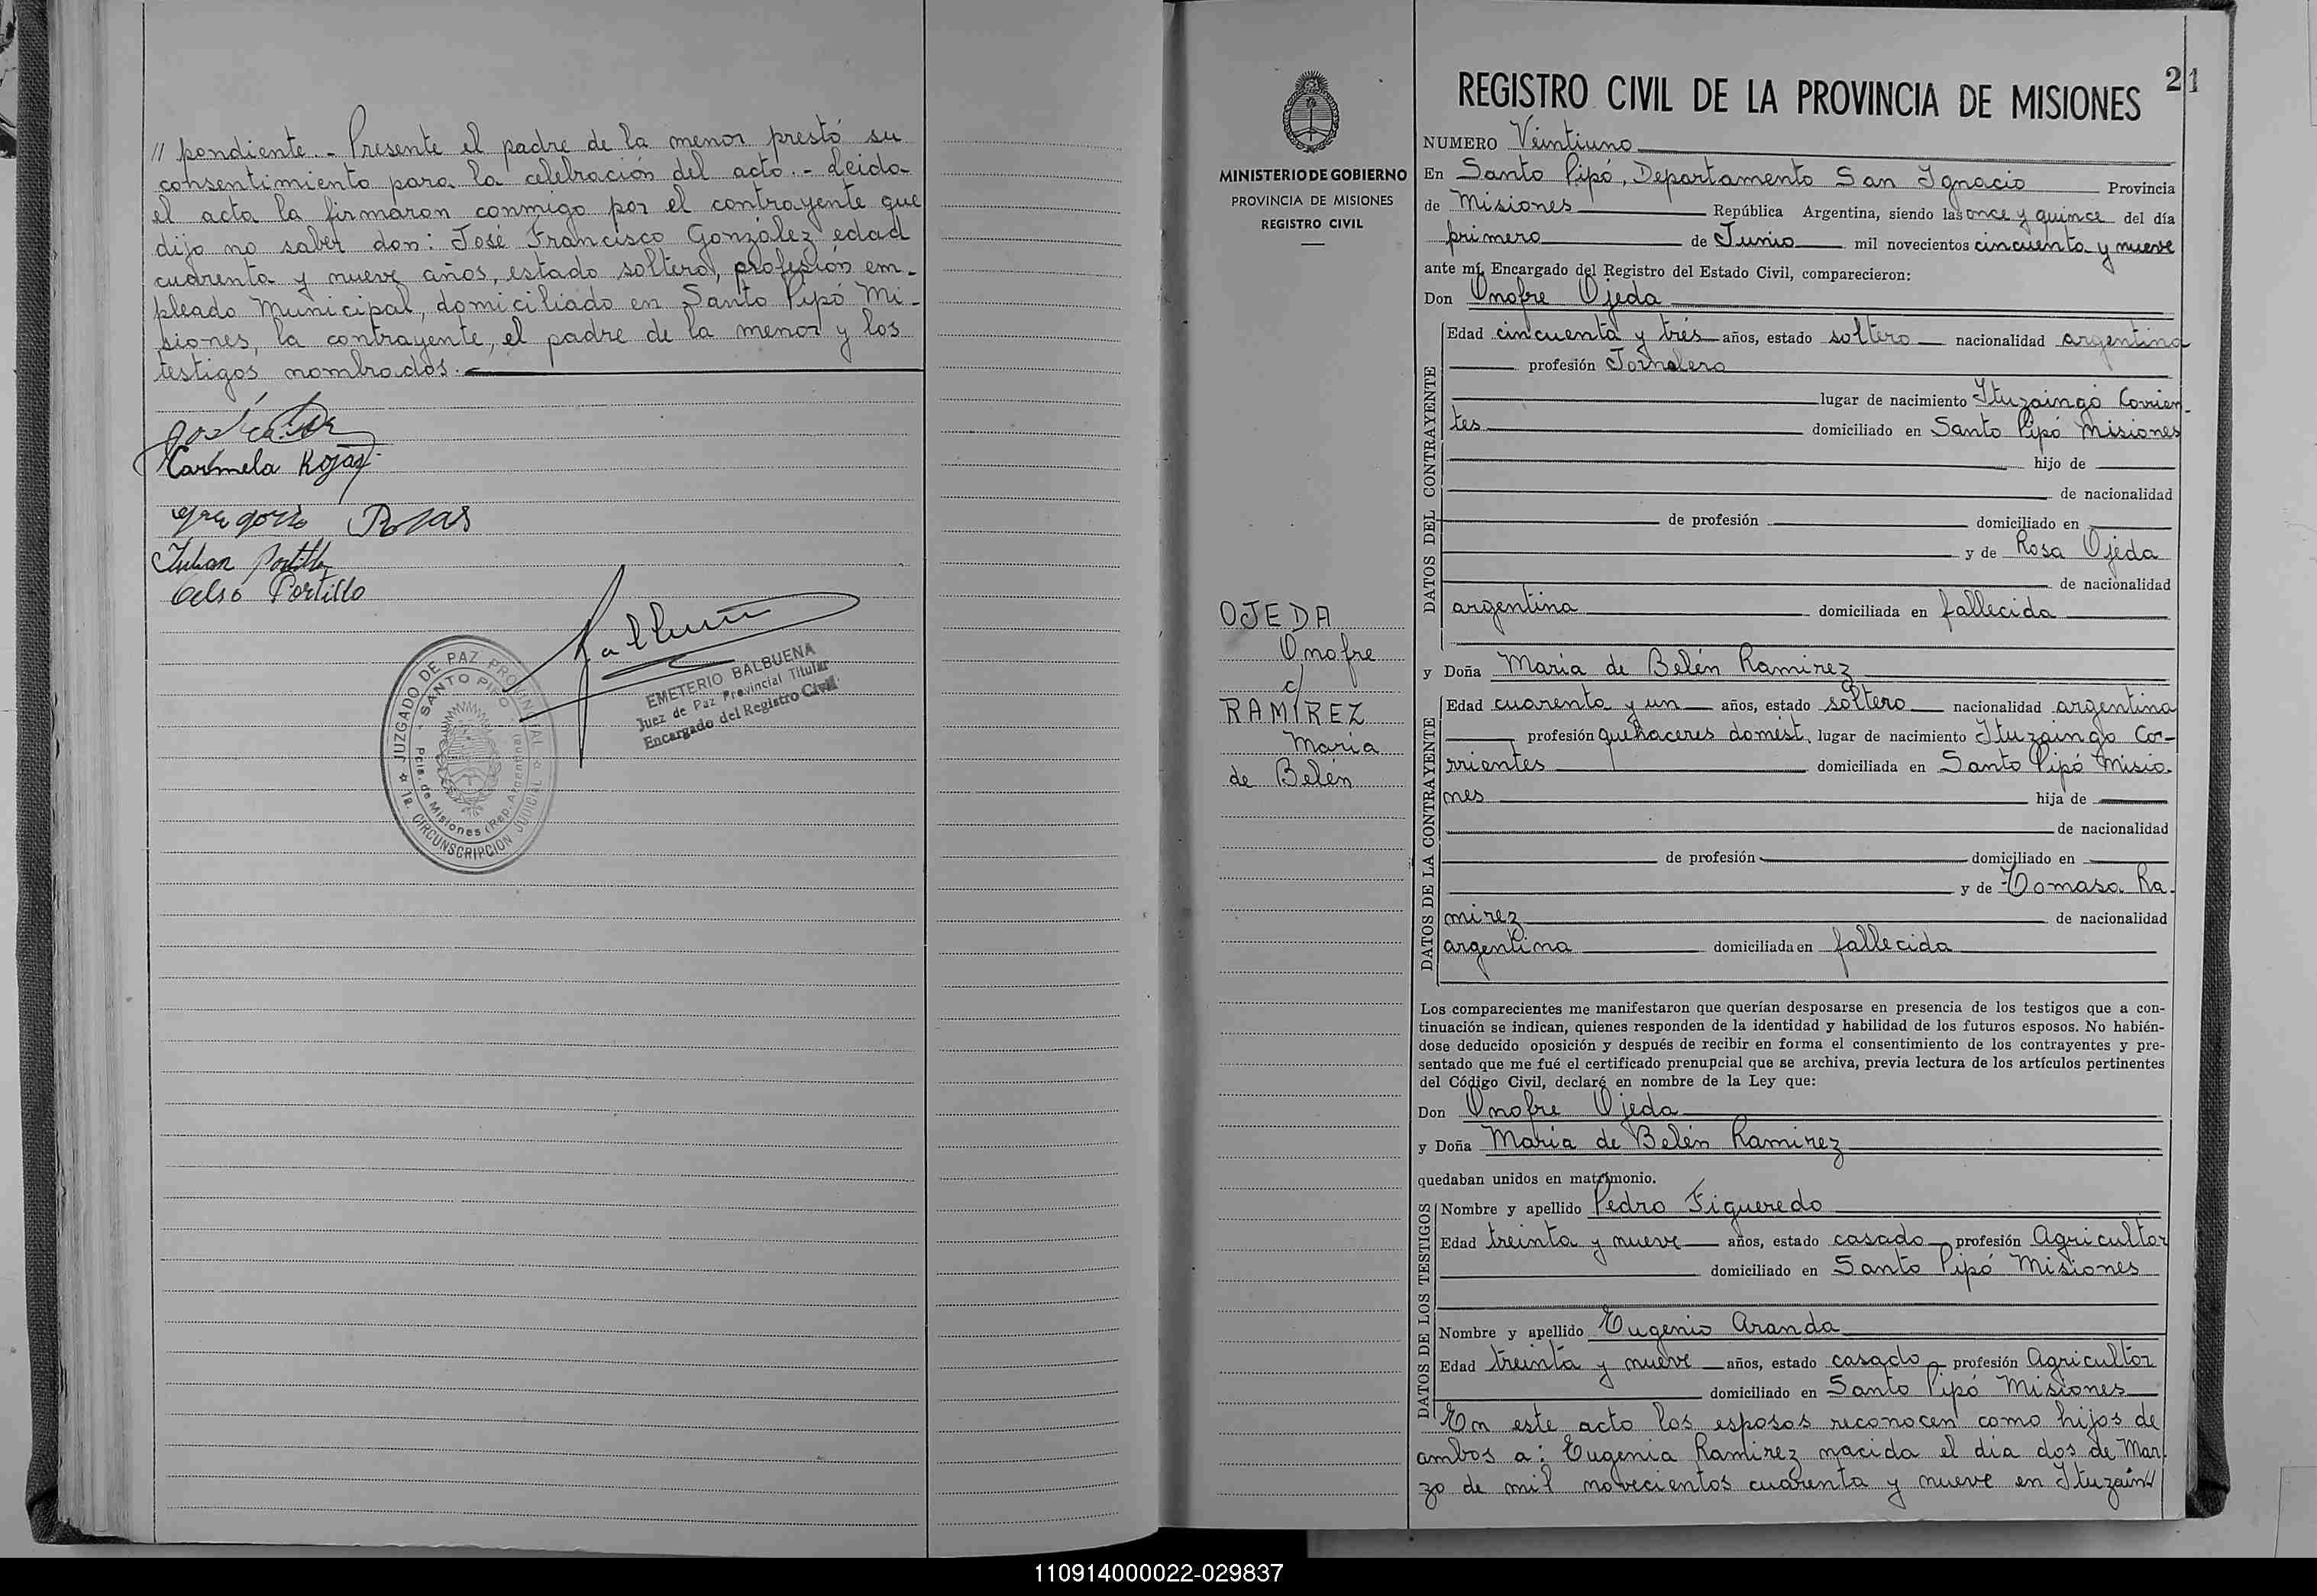 // pondiente. - Presente el padre de la menor prestó su
consentimiento para la celebración del acto. - Leida
el acta la firmaron conmigo por el contrayente que
dijo no saber don: José Francisco González edad
cuarenta y nueve años, estado soltero, profesión em-
pleado Municipal, domiciliado en Santo Pipó Mi-
siones, la contrayente, el padre de la menor y los
testigos nombrados. -
Carmela Rojas
Gregorio Rojas
Julian Portillo
Celso Portillo
EMETERIO BALBUENA
Juez de Paz Provincial Titular
Encargado del Registro Civil
JUZGADO DE PAZ PROVINCIAL
1a. CIRCUNSCRIPCION JUDICIAL
SANTO PIPO
Pcia. de Misiones (Rep. Argentina)
MINISTERIO DE GOBIERNO
PROVINCIA DE MISIONES
REGISTRO CIVIL
OJEDA
Onofre
c/
RAMIREZ
Maria
de Belén
21
REGISTRO CIVIL DE LA PROVINCIA DE MISIONES
NUMERO Veintiuno
En Santo Pipó, Departamento San Ignacio Provincia
de Misiones República Argentina, siendo las once y quince del día
primero de Junio mil novecientos cincuenta y nueve
ante mí, Encargado del Registro del Estado Civil, comparecieron:
Don Onofre Ojeda
DATOS DEL CONTRAYENTE
Edad cincuenta y trés años, estado soltero nacionalidad argentina
profesión Jornalero
lugar de nacimiento Ituzaingó Corrien-
tes domiciliado en Santo Pipó Misiones
hijo de
de nacionalidad
de profesión domiciliado en
y de Rosa Ojeda
de nacionalidad
argentina domiciliada en fallecida
y Doña Maria de Belén Ramirez
DATOS DE LA CONTRAYENTE
Edad cuarenta y un años, estado soltero nacionalidad argentina
profesión quehaceres domést. lugar de nacimiento Ituzaingó Co-
rrientes domiciliada en Santo Pipó Misio-
nes hija de
de nacionalidad
de profesión domiciliado en
y de Tomasa Ra-
mirez de nacionalidad
argentina domiciliada en fallecida
Los comparecientes me manifestaron que querían desposarse en presencia de los testigos que a con-
tinuación se indican, quienes responden de la identidad y habilidad de los futuros esposos. No habién-
dose deducido oposición y después de recibir en forma el consentimiento de los contrayentes y pre-
sentado que me fué el certificado prenupcial que se archiva, previa lectura de los artículos pertinentes
del Código Civil, declaré en nombre de la Ley que:
Don Onofre Ojeda
y Doña Maria de Belén Ramirez
quedaban unidos en matrimonio.
DATOS DE LOS TESTIGOS
Nombre y apellido Pedro Figueredo
Edad treinta y nueve años, estado casado profesión Agricultor
domiciliado en Santo Pipó Misiones
Nombre y apellido Eugenio Aranda
Edad treinta y nueve años, estado casado profesión Agricultor
domiciliado en Santo Pipó Misiones
En este acto los esposos reconocen como hijos de
ambos a: Eugenia Ramirez nacida el dia dos de Mar-
zo de mil novecientos cuarenta y nueve en Ituzain//
110914000022-029837